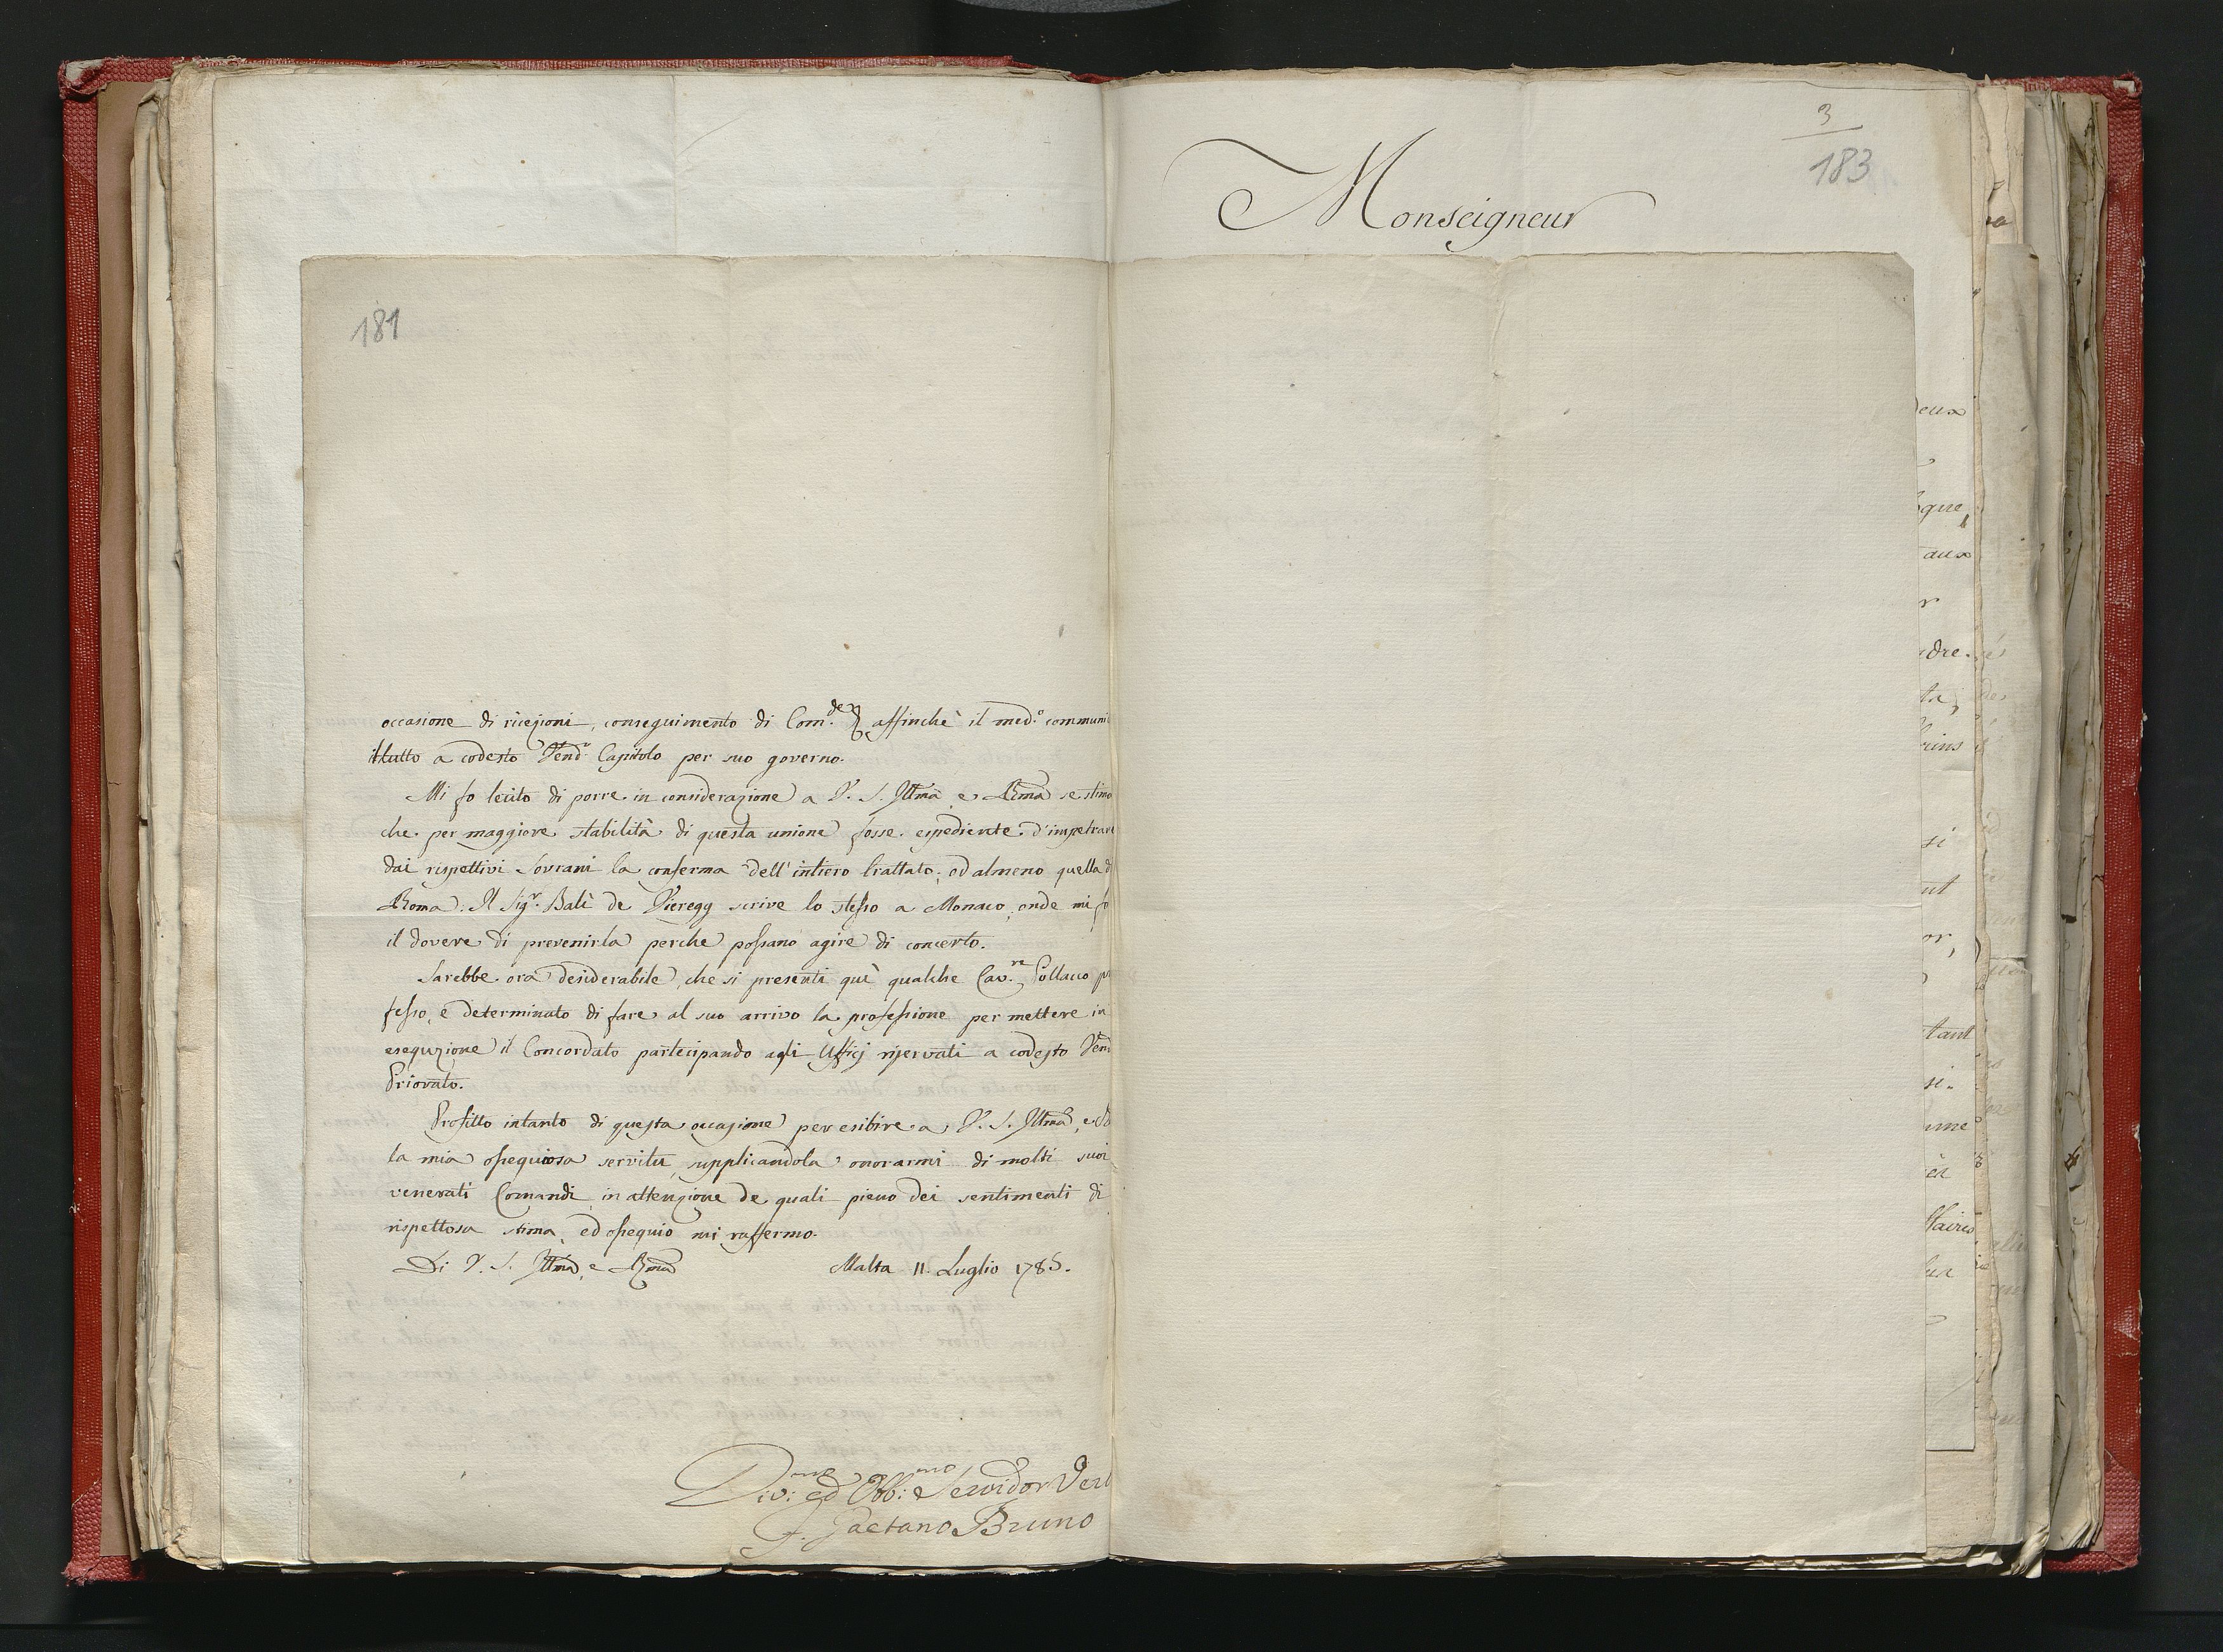 181
occasione di ricezioni, conseguimento di Com.de affinchè il med.o communi
il tutto a codesto Vend. Capitolo per suo governo.
Mi fo lecito di porre in considerazione a V. S. Illma e Rma se stima
che per maggiore stabilità di questa unione fosse espediente d'impetrare
dai rispettivi Sovrani la conferma dell'intiero trattato, od almeno quella d
Roma. Il Sigr. Balì de Vieregg scrive lo stesso a Monaco, onde mi fo
il dovere di prevenirla perche possano agire di concerto.
Sarebbe ora desiderabile, che si presenti quì qualche Cav.re Pollacco
fesso, e determinato di fare al suo arrivo la professione per mettere in
esequzione il Concordato partecipando agli Uffizj riservati a codesto Vend
Priorato.
Profitto intanto di questa occasione per esibire a V. S. Illma, e
la mia ossequiosa servitu, supplicandola onorarmi di molti suoi
venerati Comandi, in attenzione de quali pieno dei sentimenti di
rispettosa stima, ed ossequio mi raffermo.
Di V. S. Illma, e Rma
Malta 11. Luglio 1785.
Div:mo ed Obb:mo Servidor Vero
f. Gaetano Bruno
3
183
Monseigneur
eux
que,
aux
r
dre.
ta,
rins
si
ut
or,
tant
si-
ume
et
ffaires